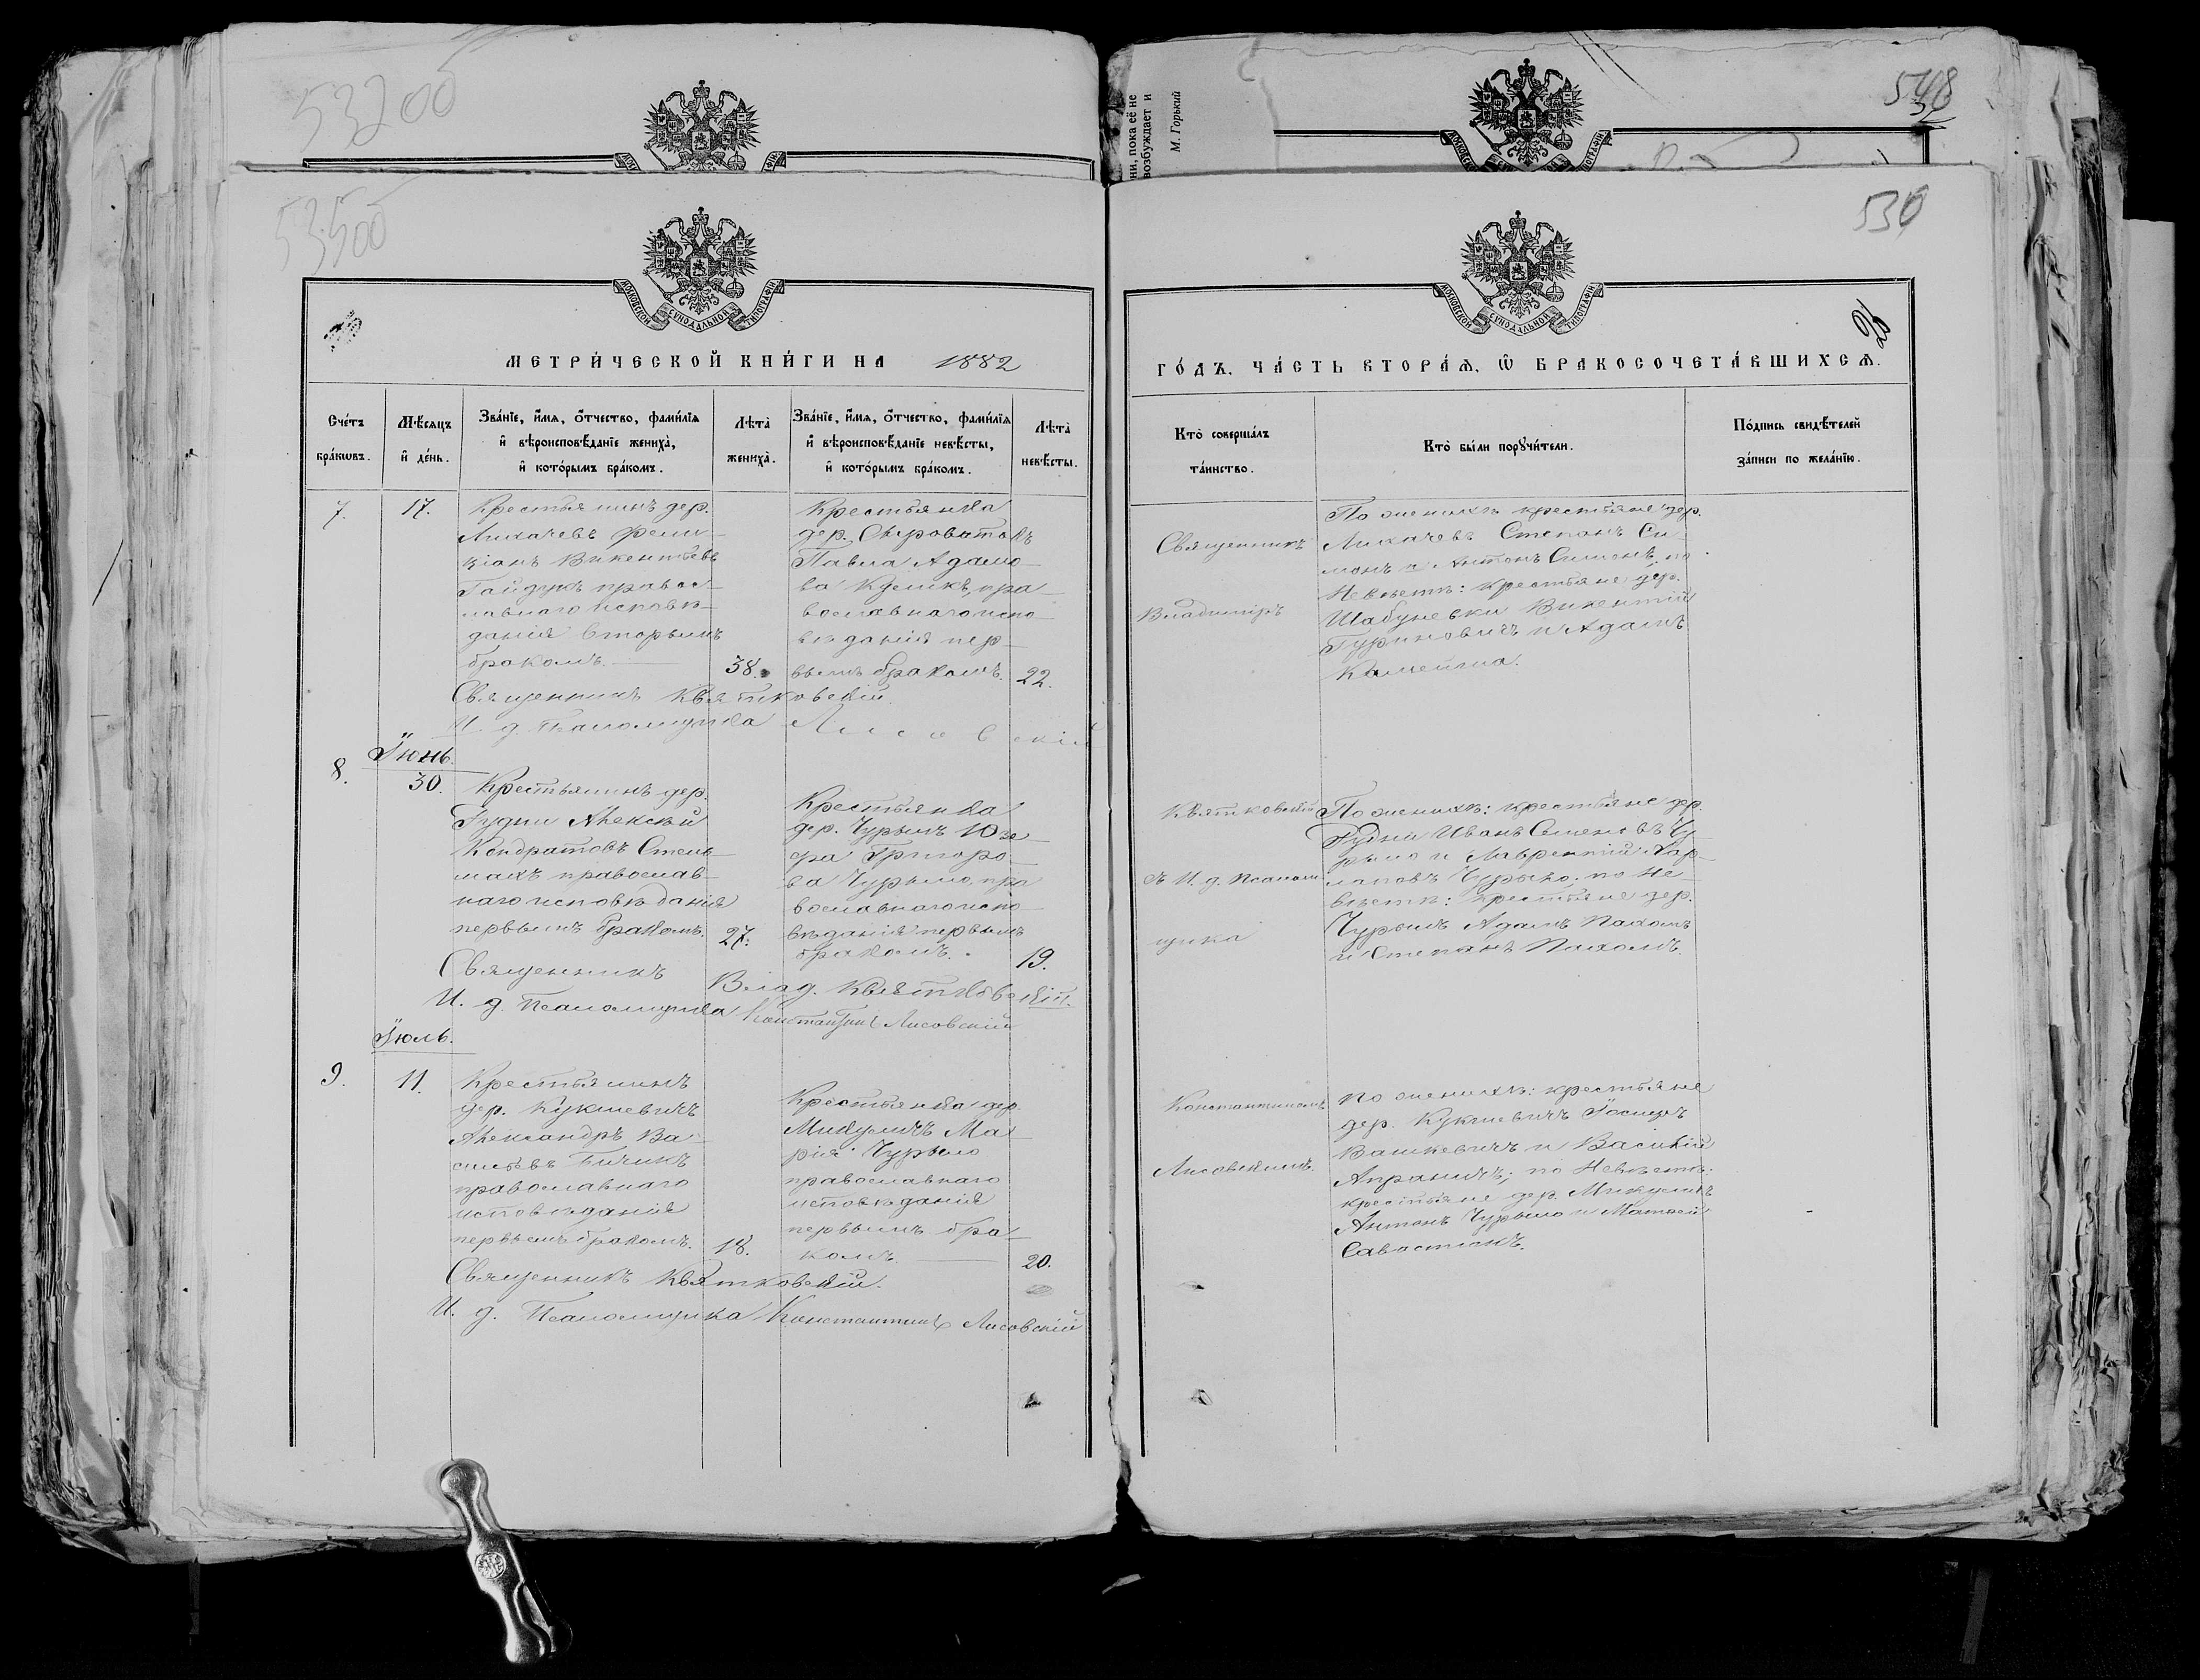 53200
ни, пока её не
возбуждает и
М. Горький
548
53500
530
МОСКОВСКОЙ СѴНОДАЛЬНОЙ ТИПОГРАФІИ
МОСКОВСКОЙ СѴНОДАЛЬНОЙ ТИПОГРАФІИ
26
МЕТРИ́ЧЕСКОЙ КНИ́ГИ НА 1882
ГО́ДЪ, ЧА́СТЬ ВТОРА́Ѧ, Ѽ БРАКОСОЧЕТА́ВШИХСѦ.
Сче́тъ
бра́кѡвъ.
Мѣ́сяцъ
и҆ де́нь.
Зва́нїе, и҆́мя, ѻ҆́тчество, фами́лїя
и҆ вѣроисповѣ́данїе жениха̀,
и҆ кото́рымъ бра́комъ.
Лѣ́та̀
жениха̀.
Зва́нїе, и҆́мя, ѻ҆́тчество, фами́лїя
и҆ вѣроисповѣ́данїе невѣ́сты,
и҆ кото́рымъ бра́комъ.
Лѣ́та̀
невѣ́сты.
Кто̀ соверша́лъ
та́инство.
Кто̀ бы́ли порꙋчи́тели.
По́дпись свидѣ́телей
за́писи по жела́нїю.
7.
17.
Крестьянинъ дер.
Лихачевъ Фели-
ціанъ Викентьевъ
Гайдукъ правос-
лавнаго исповѣ-
данія вторымъ
бракомъ.
38.
Крестьянка
дер. Сыроватокъ
Павла Адамо-
ва Куликъ, пра-
вославнаго испо-
вѣданія пер-
вымъ бракомъ.
22.
Священникъ
Владиміръ
По женихѣ крестьяне дер.
Лихачевъ Степанъ Си-
монъ и Антонъ Симонъ, по
Невѣстѣ: крестьяне дер.
Шабуневки Викентій
Гуриновичъ и Адамъ
Священникъ Квятковскій.
И. д. Псаломщика Лисовскій
Іюнь.
8.
30.
Крестьянинъ дер.
Рудни Алексѣй
Кондратовъ Стель-
махъ православ-
наго исповѣданія
первымъ бракомъ.
27.
Крестьянка
дер. Чурылъ Юзе-
фа Григоро-
ва Чурыло, пра-
вославнаго испо-
вѣданія первымъ
бракомъ.
19.
Квятковскій
съ И. д. Псалом-
щика
По женихѣ: крестьяне дер.
Рудни Иванъ Семеновъ Чу-
рыло и Лаврентій Хар-
лаповъ Чурыло; по Не-
вѣстѣ: крестьяне дер.
Чурылъ Адамъ Пахомъ
и Степанъ Пахомъ.
Священникъ Влад. Квятковскій.
И. д. Псаломщика Константинъ Лисовскій
Іюль.
9.
11.
Крестьянинъ
дер. Кукшевичъ
Александръ Ва-
сильевъ Бичикъ
православнаго
исповѣданія
первымъ бракомъ.
18.
Крестьянка дер.
Микуличъ Ма-
рія Чурыло
православнаго
исповѣданія
первымъ бра-
комъ.
20.
Константиномъ
Лисовскимъ.
По женихѣ: крестьяне
дер. Кукшевичъ Іосифъ
Вашкевичъ и Василій
по Невѣстѣ:
крестьяне дер. Микуличъ
Антонъ Чурыло и Матвѣй
Савастюкъ.
Священникъ Квятковскій.
И. д. Псаломщика Константинъ Лисовскій